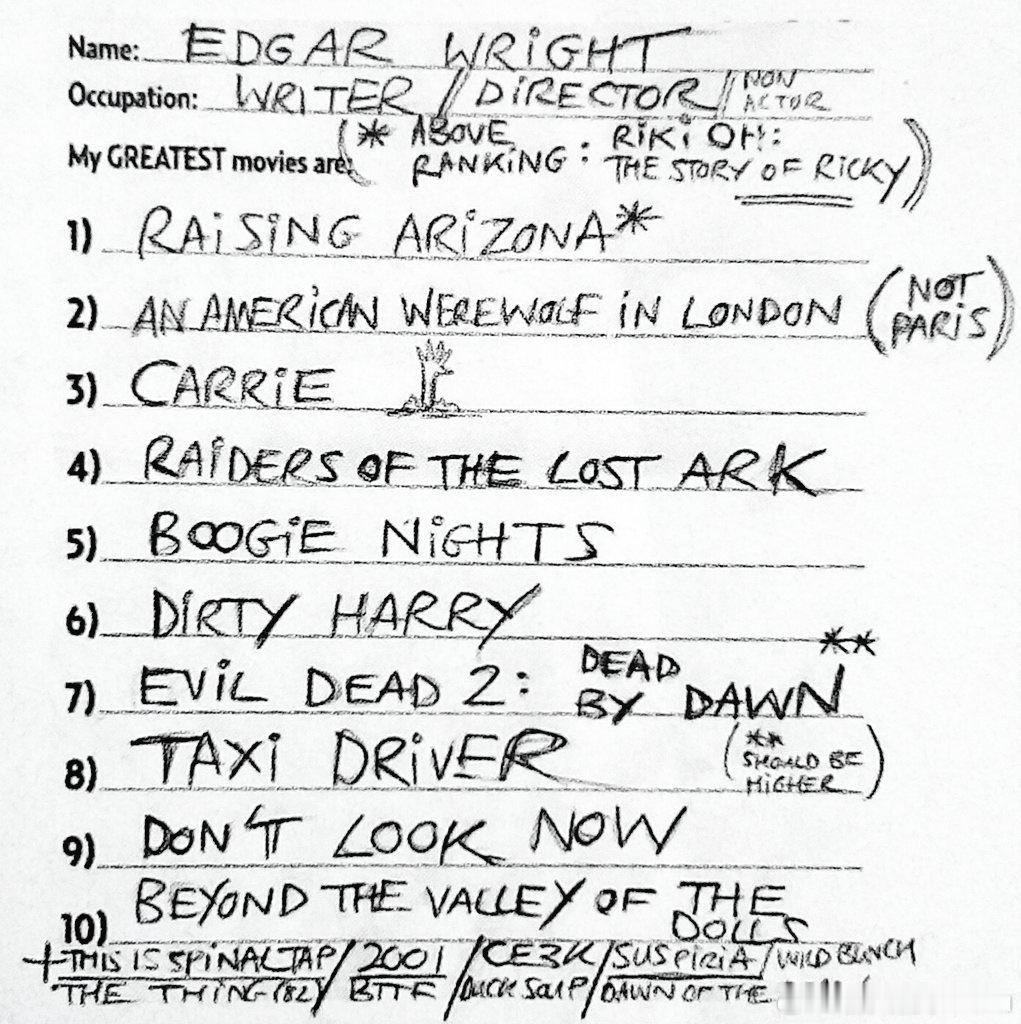 Name: EDGAR WRIGHT
Occupation: WRITER / DIRECTOR / NON ACTOR
My GREATEST movies are: (* ABOVE RANKING: RIKI OH: THE STORY OF RICKY)
1) RAISING ARIZONA*
2) AN AMERICAN WEREWOLF IN LONDON (NOT PARIS)
3) CARRIE
4) RAIDERS OF THE LOST ARK
5) BOOGIE NIGHTS
6) DIRTY HARRY
7) EVIL DEAD 2: DEAD BY DAWN **
8) TAXI DRIVER (** SHOULD BE HIGHER)
9) DON'T LOOK NOW
10) BEYOND THE VALLEY OF THE DOLLS
+ THIS IS SPINAL TAP / 2001 / CE3K / SUSPIRIA / WILD BUNCH
THE THING (82) / BTTF / DUCK SOUP / DAWN OF THE